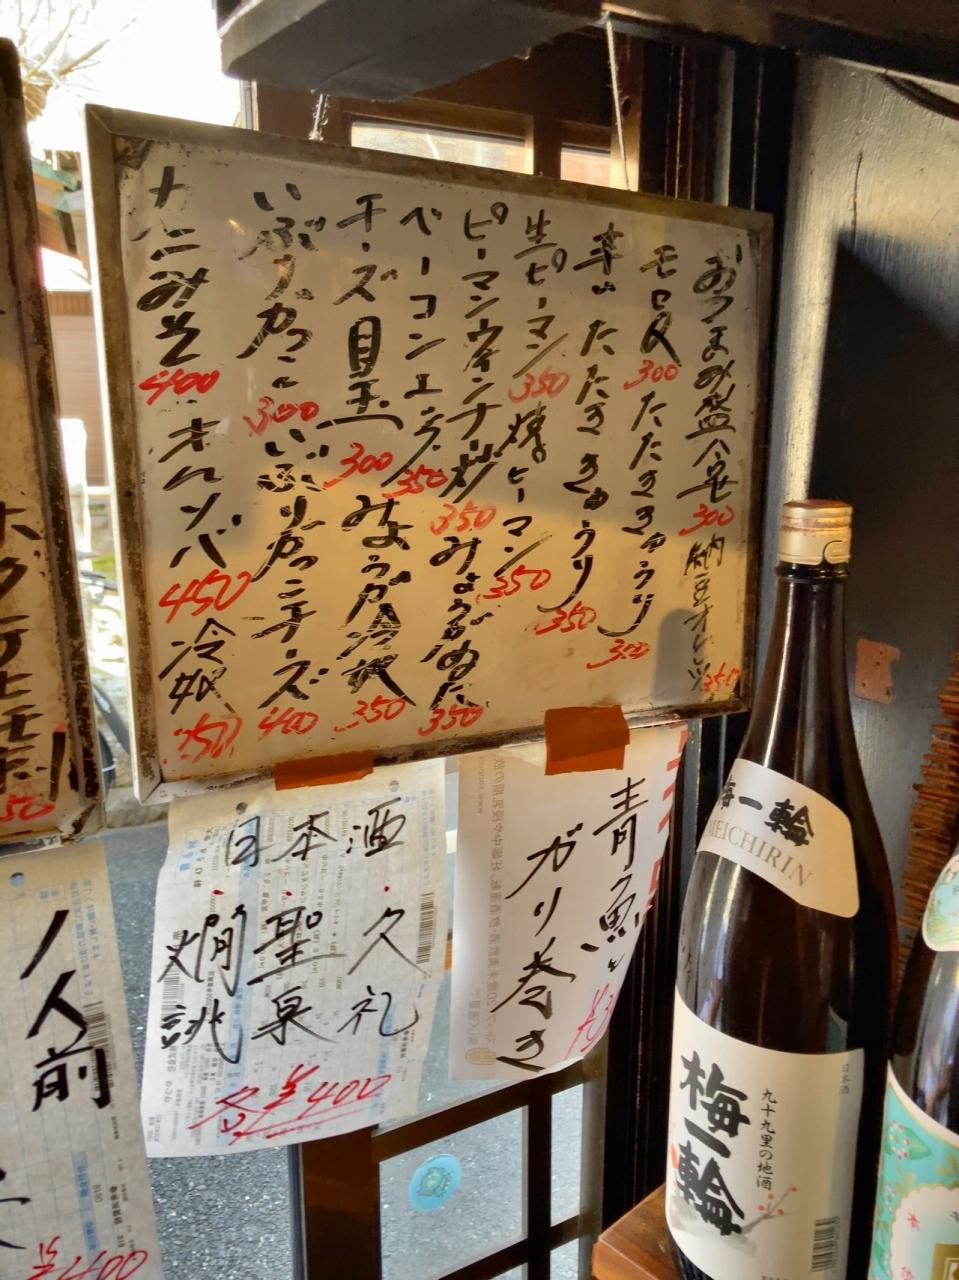 おつまみ盛合せ 300 納豆オムレツ 350
モロQ 300 たたききゅうり 300
辛いたたききゅうり 350
生ピーマン 350 焼ピーマン 350
ピーマンウインナー炒 350 みょうがめた 350
ベーコンエッグ 350
チーズ目玉 300 みょうが冷奴 350
いぶりがっこ 300 いぶりがっこチーズ 400
カニみそ 400 ホルンバ 450 冷奴
50
青魚
ガリ巻き
日本酒
・久礼
・聖泉
・
各¥400
1人前
¥400
梅一輪
MEICHIRIN
日本酒
九十九里の地酒
梅一輪